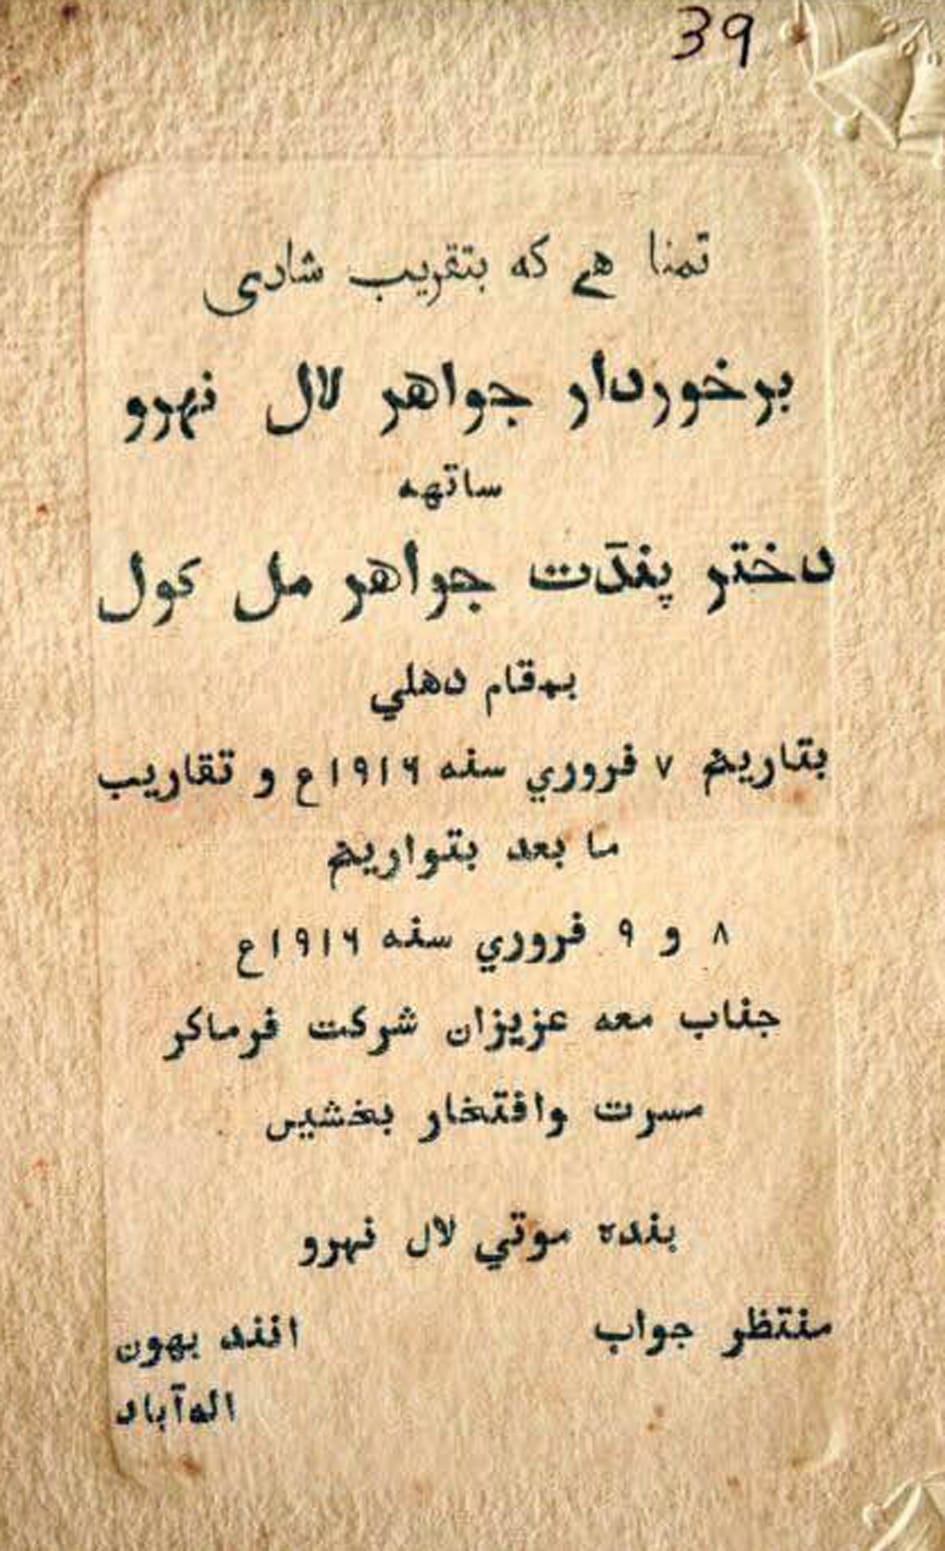 39
تمنا ہے کہ بتقریب شادی
برخوردار جواهر لال نہرو
ساتهہ
دختر پنڈت جواهر مل کول
بمقام دهلي
بتاریخ ۷ فروري سنہ ۱۹۱۶ع و تقاریب
ما بعد بتواریخ
۸ و ۹ فروري سنہ ۱۹۱۶ع
جناب معہ عزیزان شرکت فرماکر
مسرت وافتخار بخشیں
بندہ موتي لال نہرو
منتظر جواب
انند بهون
الہ آباد